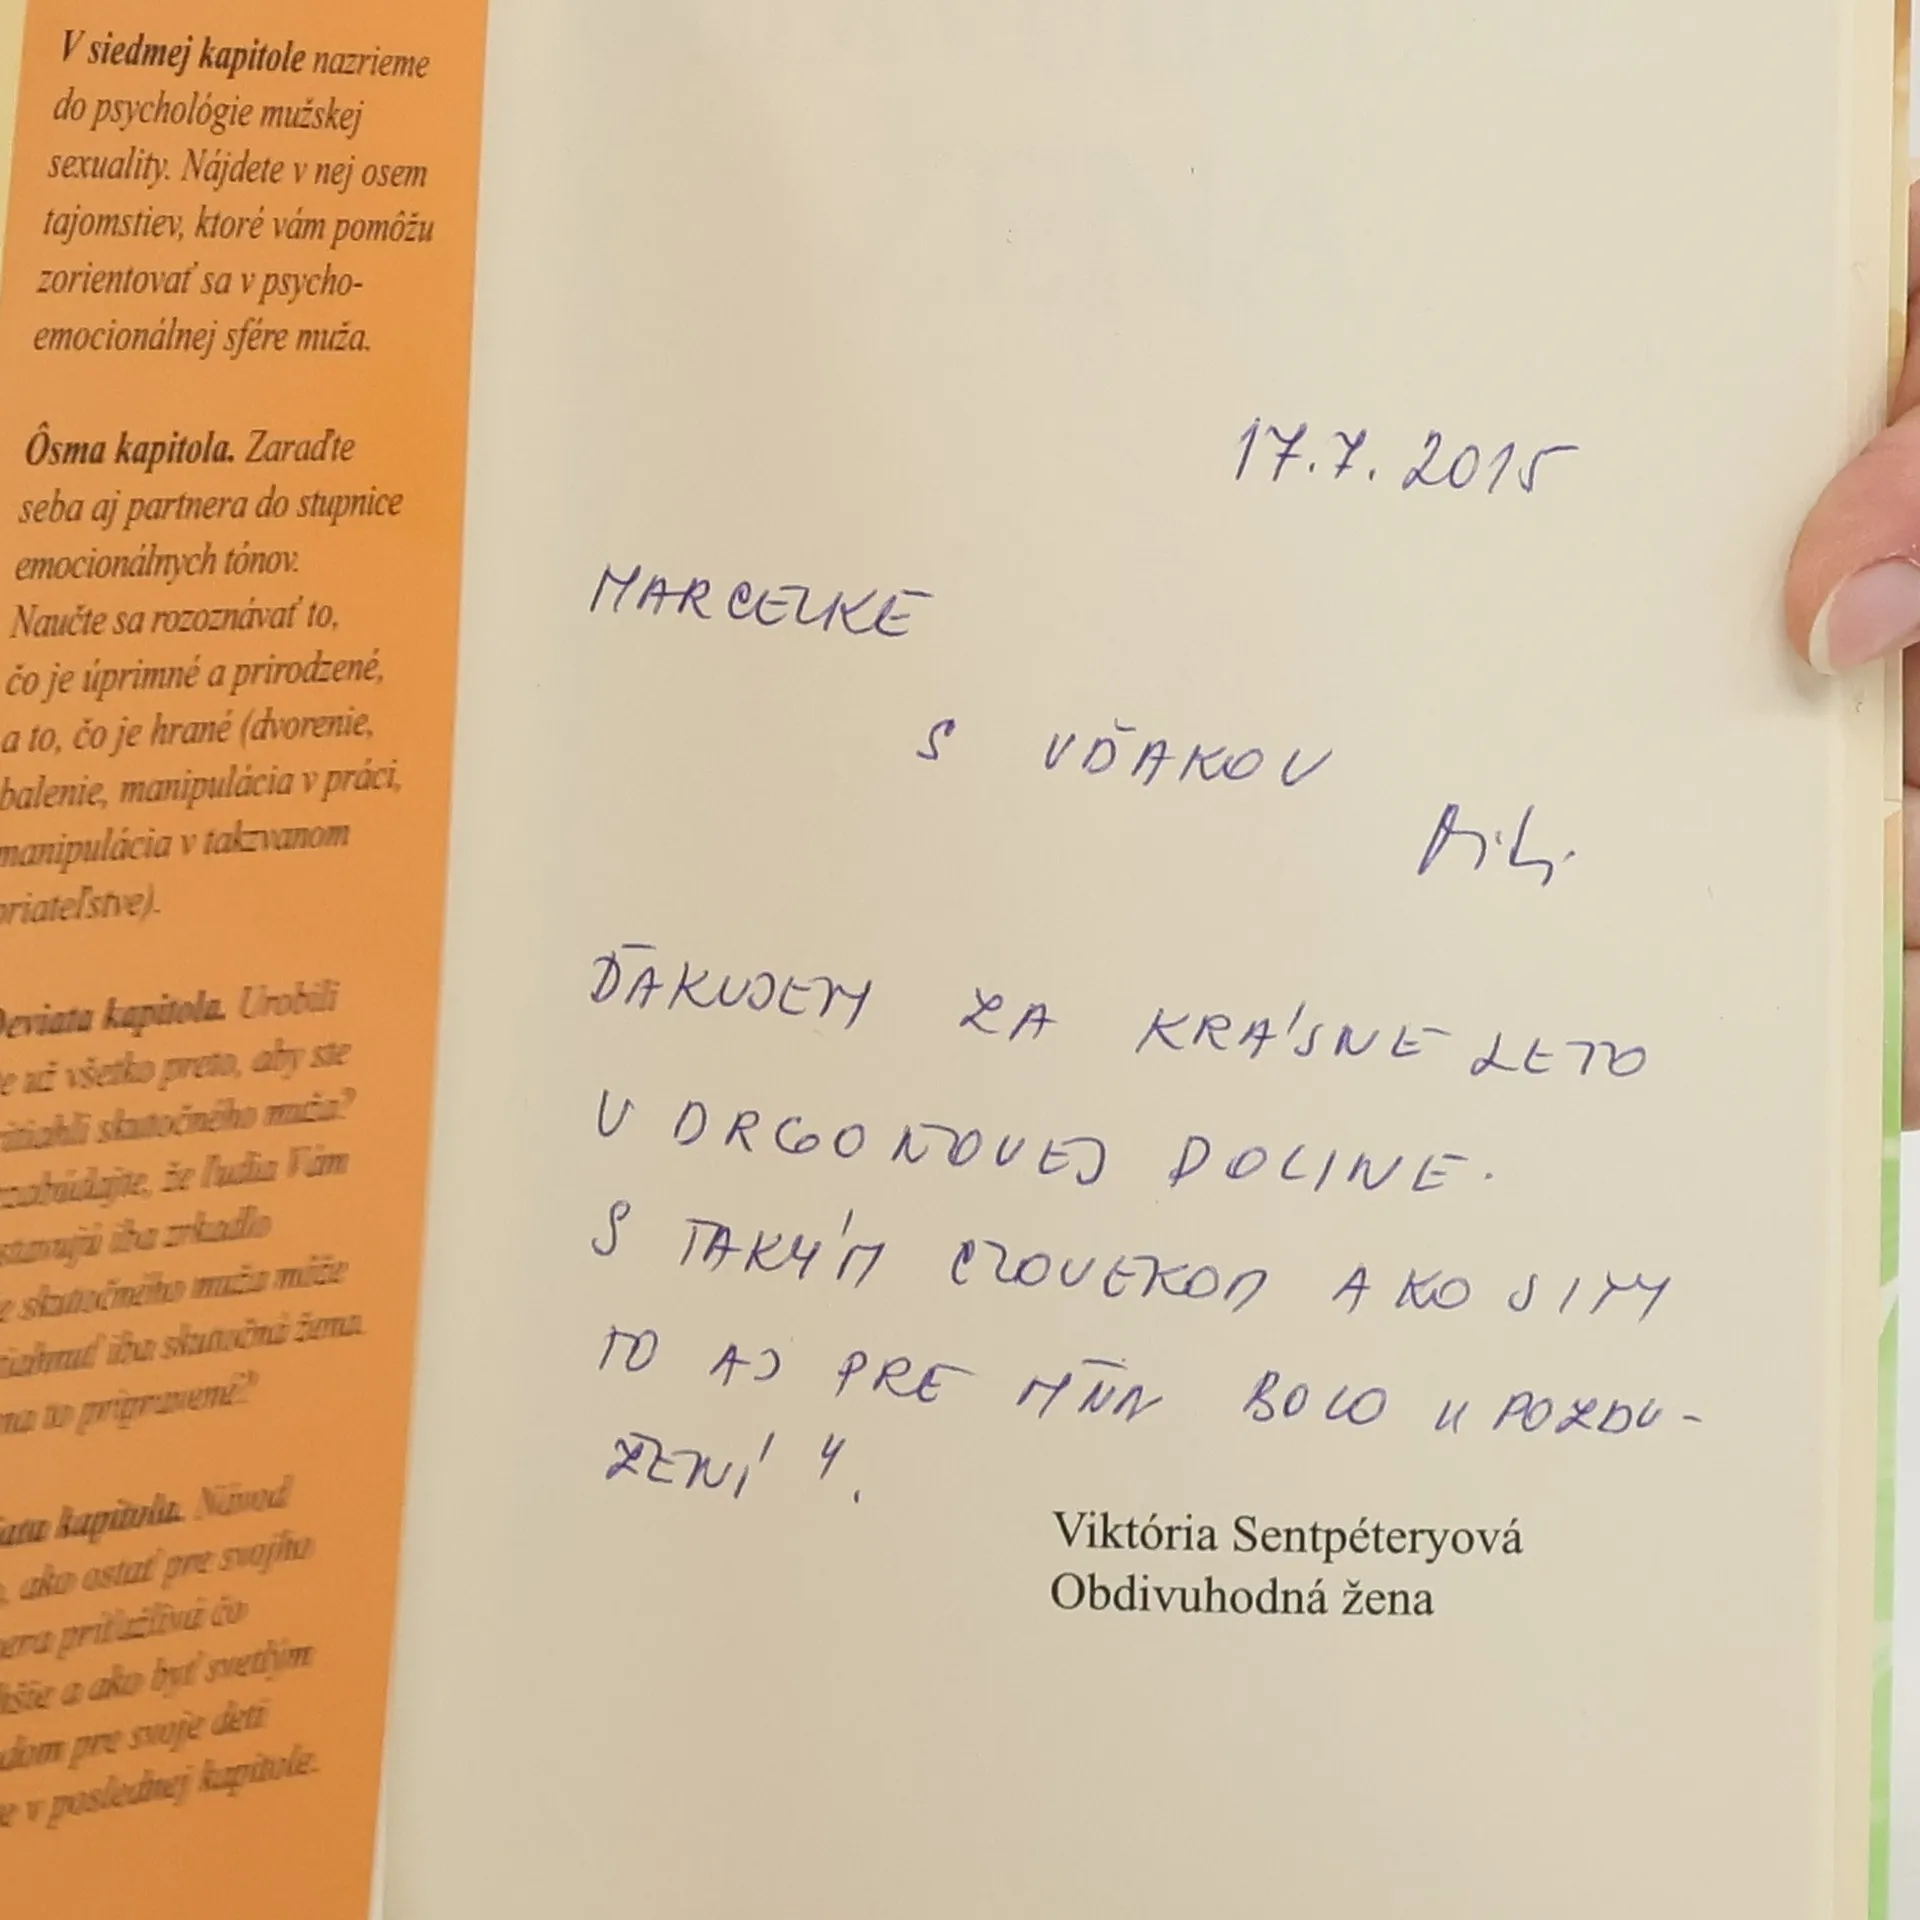 V siedmej kapitole nazrieme
do psychológie mužskej
sexuality. Nájdete v nej osem
tajomstiev, ktoré vám pomôžu
zorientovať sa v psycho-
emocionálnej sfére muža.
Ôsma kapitola. Zaraďte
seba aj partnera do stupnice
emocionálnych tónov.
Naučte sa rozoznávať to,
čo je úprimné a prirodzené,
a to, čo je hrané (dvorenie,
balenie, manipulácia v práci,
manipulácia v takzvanom
priateľstve).
Deviata kapitola. Urobili
te už všetko preto, aby ste
ritiahli skutočného muža?
zabúdajte, že ľudia Vám
stavujú iba zrkadlo
e skutočného muža môže
tiahnuť iba skutočná žena.
na to pripravené?
iata kapitola. Návod
, ako ostať pre svojho
nera príťažlivá čo
hšie a ako byť svetlým
dom pre svoje deti
e v poslednej kapitole.
17.7.2015
MARCELKE
S VĎAKOU
ĎAKUJEM ZA KRÁSNE LETO
V DRGOŇOVEJ DOLINE.
S TAKÝM CLOVEKOM AKO SI TY
TO AJ PRE BOLO U POZDU-
Viktória Sentpéteryová
Obdivuhodná žena